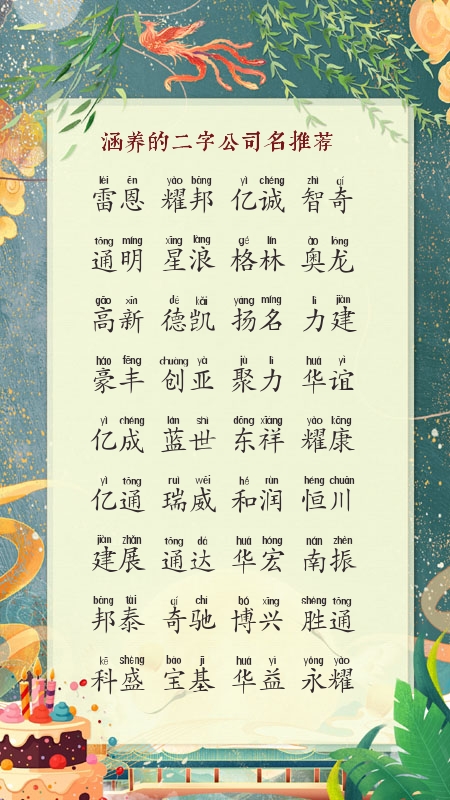 涵养的二字公司名推荐
léi ēn yào bāng yì chéng zhì qí
雷恩 耀邦 亿诚 智奇
tōng míng xīng làng gé lín ào lóng
通明 星浪 格林 奥龙
gāo xīn dé kǎi yáng míng lì jiàn
高新 德凯 扬名 力建
háo fēng chuàng yà jù lì huá yì
豪丰 创亚 聚力 华谊
yì chéng lán shì dōng xiáng yào kāng
亿成 蓝世 东祥 耀康
yì tōng ruì wēi hé rùn héng chuān
亿通 瑞威 和润 恒川
jiàn zhǎn tōng dá huá hóng nán zhèn
建展 通达 华宏 南振
bāng tài qí chí bó xīng shèng tōng
邦泰 奇驰 博兴 胜通
kē shèng bǎo jī huá yì yǒng yào
科盛 宝基 华益 永耀